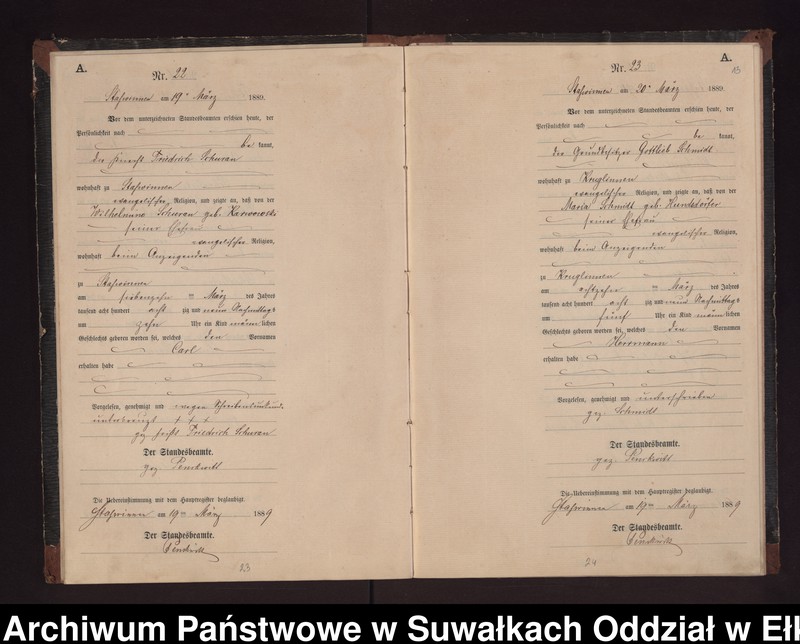 A.
Nr. 22
am 19n März 1889.
Vor dem unterzeichneten Standesbeamten erschien heute, der
Persönlichkeit nach
be kannt,
der Knecht Friedrich
wohnhaft zu
evangelischer Religion, und zeigte an, daß von der
Wilhelmine geb.
seiner Ehefrau
evangelischer Religion,
wohnhaft beim Anzeigenden
zu
am siebenzehn ten März des Jahres
tausend acht hundert acht zig und neun Nachmittags
um zehn Uhr ein Kind männlichen
Geschlechts geboren worden sei, welches den Vornamen
Carl
erhalten habe
Vorgelesen, genehmigt und wegen
unterkreuzt + + +
Friedrich
Der Standesbeamte.
gez.
Die Uebereinstimmung mit dem Hauptregister beglaubigt.
am 19ten März 1889
Der Standesbeamte.
23
A.
Nr. 23
23
am 20n März 1889.
Vor dem unterzeichneten Standesbeamten erschien heute, der
Persönlichkeit nach
be kannt,
der Grundbesitzer Gottlieb Schmidt
wohnhaft zu
evangelischer Religion, und zeigte an, daß von der
Maria Schmidt geb.
seiner Ehefrau
evangelischer Religion,
wohnhaft beim Anzeigenden
zu
am achtzehn ten März des Jahres
tausend acht hundert acht zig und neun Nachmittags
um fünf Uhr ein Kind männlichen
Geschlechts geboren worden sei, welches den Vornamen
Herrmann
erhalten habe
Vorgelesen, genehmigt und unterschrieben
gez. Schmidt
Der Standesbeamte.
gez.
Die Uebereinstimmung mit dem Hauptregister beglaubigt.
am 19ten März 1889
Der Standesbeamte.
24
Archiwum Państwowe w Suwałkach Oddział w Eł